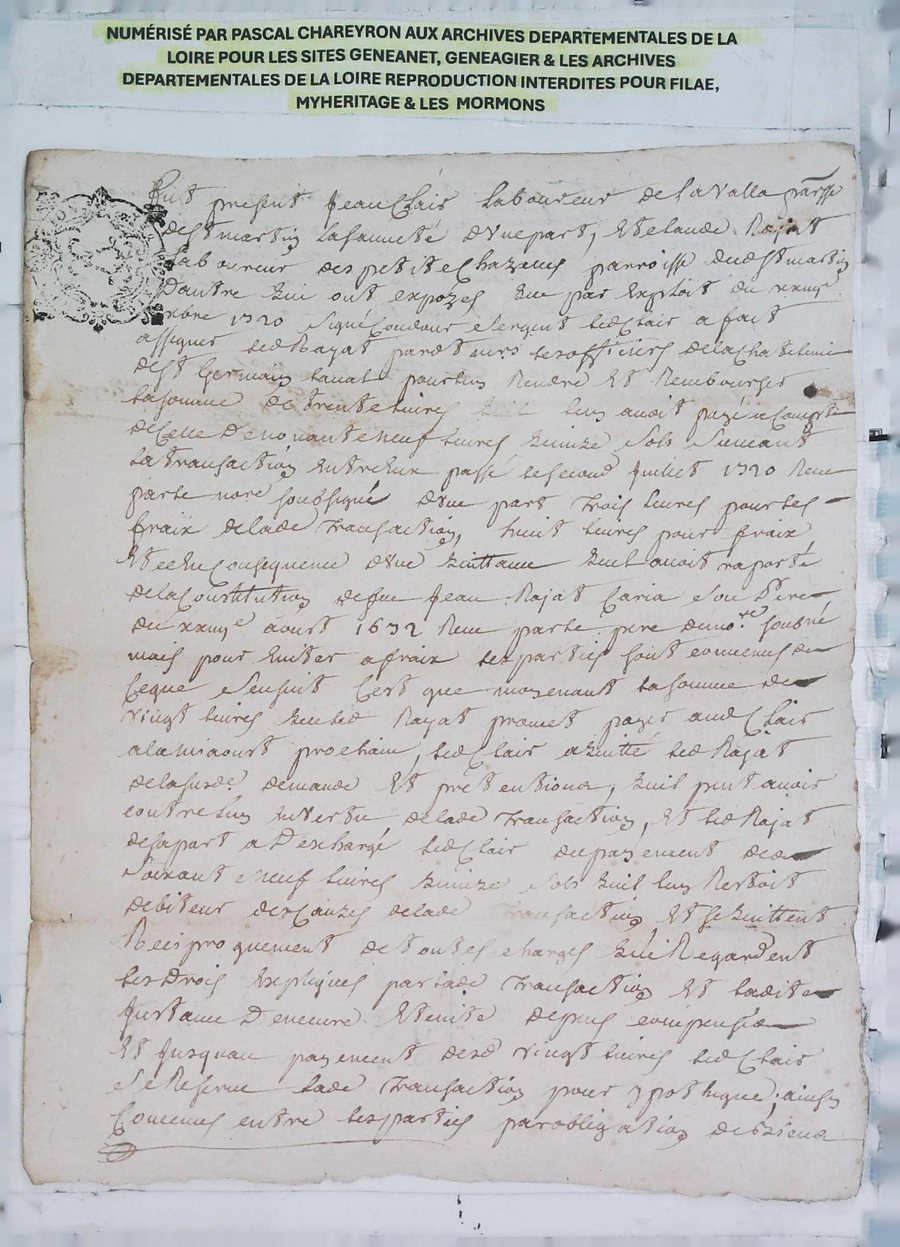 NUMÉRISÉ PAR PASCAL CHAREYRON AUX ARCHIVES DEPARTEMENTALES DE LA
LOIRE POUR LES SITES GENEANET, GENEAGIER & LES ARCHIVES
DEPARTEMENTALES DE LA LOIRE REPRODUCTION INTERDITES POUR FILAE,
MYHERITAGE & LES MORMONS
Fut present Jean Clair Laboureur de la Valla parsse
de St martin La sauneté d'une part, Et claude Rajat
Laboureur des petites Chazeaus parroisse dud St martin
D'autre Qui ont expozés que par Exploit du xxiiije
xbre 1720 signé Coudour sergent led Clair a fait
assigner led Rajat pardt mrs les officiers de la Chatelenie
de St Germain Laual pour luy Rendre Et Rembourser
La somme de trente Liures quil luy auoit payé a Compte
de Celle De nonante neuf Liures quinze sols suiuant
La transaction entreux passé le second Juillet 1720 Receue
par le nore soubsigné d'une part trois Liures pour les
fraix de lade transaction, huit Liures pour fraix
Et en Consequence d'une quittance quil auoit raporté
de la Constitution de feu Jean Rajat Caria son Pere
du xxiije aoust 1632 Receue par le pere du nore soubné
mais pour Euiter a fraix les parties sont conuenus de
Ceque sensuit C'est que moyenant la somme de
vingt Liures que led Rajat promet payer aud Clair
a la miaoust prochain, led Clair a quitté led Rajat
de la susde demande Et pretentions, quil peut auoir
contre luy en vertu de lade transaction, Et led Rajat
de sa part a Deschargé led Clair du payement de
soixant neuf Liures quinze sols quil luy Restoit
debiteur des Causes de lade transaction Et se quittent
Reciproquement de toutes charges qui Regardent
les Drois Expliqués par lade transaction Et ladite
Instance Demeure Eteinte depens compensés
Et jusquau payement desd vingt Liures led Clair
se Reserue lade transaction pour ypotheque, ainsy
Conuenus entre les parties par obligation de biens